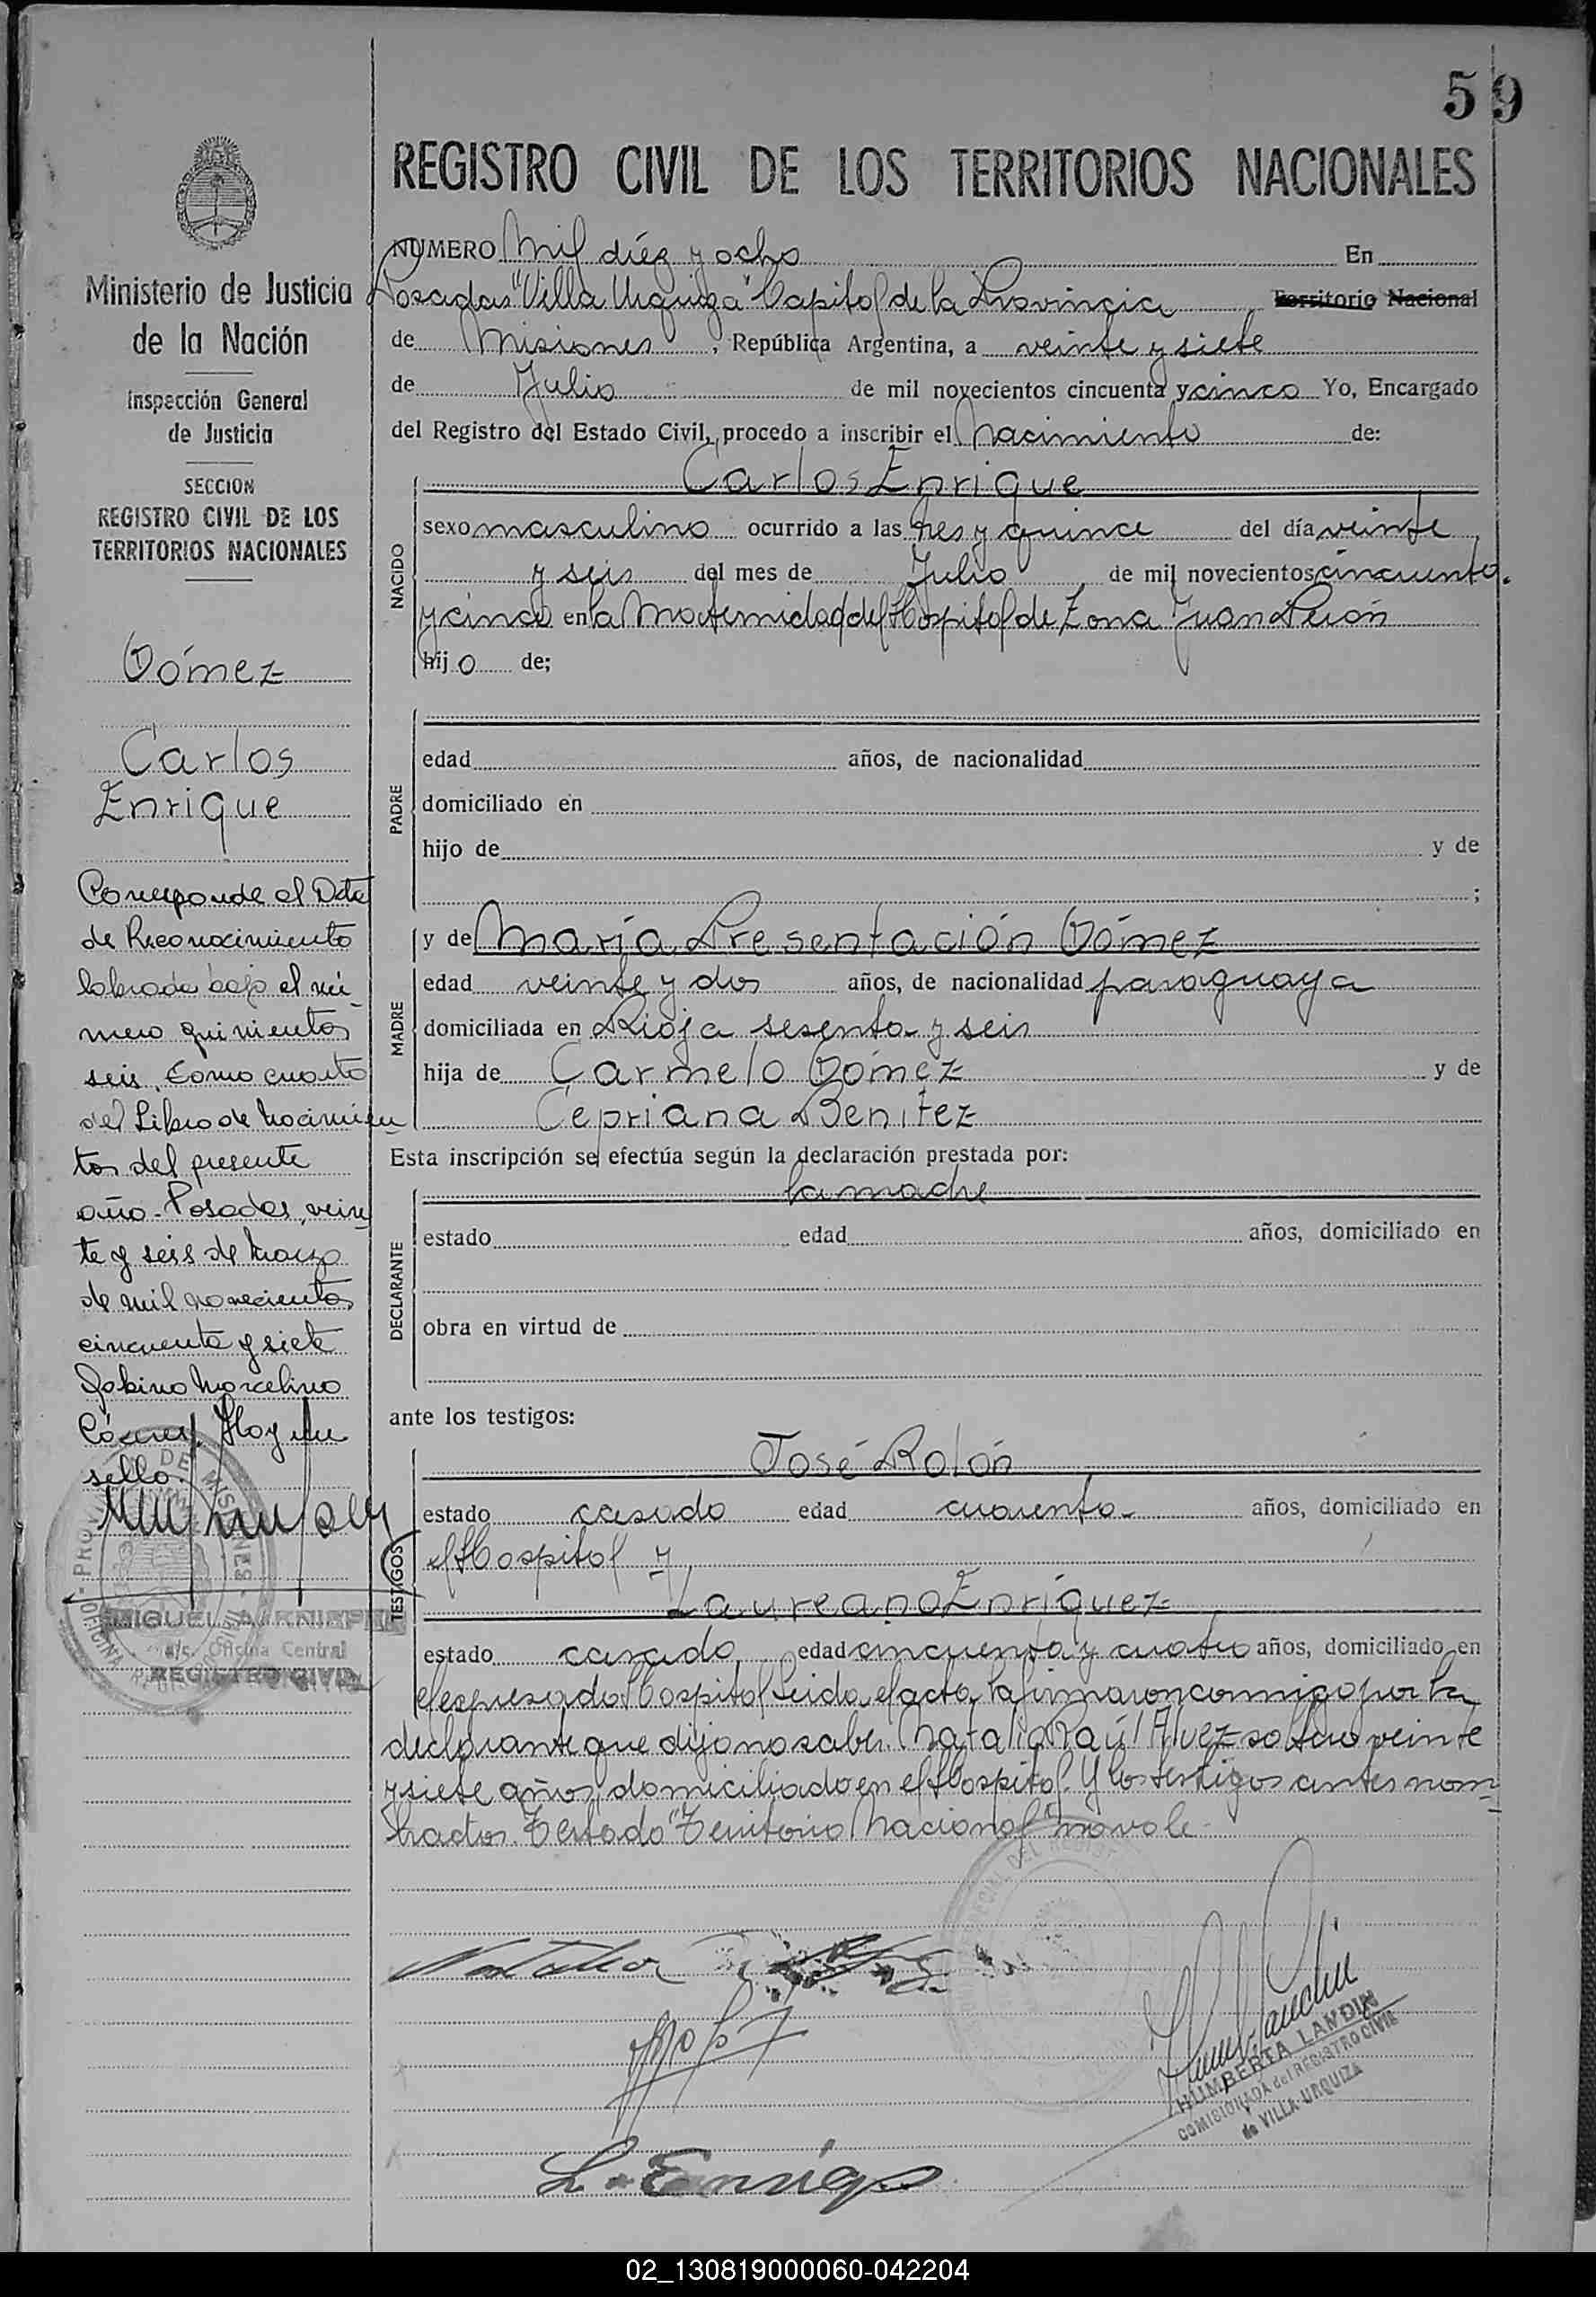 59
REGISTRO CIVIL DE LOS TERRITORIOS NACIONALES
NUMERO Mil diéz y ocho En
Posadas "Villa Urquiza" Capital de la Provincia Territorio Nacional
de Misiones, República Argentina, a veinte y siete
de Julio de mil novecientos cincuenta y cinco Yo, Encargado
del Registro del Estado Civil, procedo a inscribir el Nacimiento de:
Carlos Enrique
NACIDO
sexo masculino ocurrido a las tres y quince del día veinte
y seis del mes de Julio de mil novecientos cincuenta
y cinco en la Maternidad del Hospital de Zona Juan Perón
hijo de;
PADRE
edad años, de nacionalidad
domiciliado en
hijo de y de
;
y de María Presentación Gómez
MADRE
edad veinte y dos años, de nacionalidad paraguaya
domiciliada en Rioja sesenta y seis
hija de Carmelo Gómez y de
Cepriana Benítez
Esta inscripción se efectúa según la declaración prestada por:
la madre
DECLARANTE
estado edad años, domiciliado en
obra en virtud de
ante los testigos:
José Rolón
TESTIGOS
estado casado edad cuarenta años, domiciliado en
el Hospital y
Laureano Enríquez
estado casado edad cincuenta y cuatro años, domiciliado en
el expresado Hospital Leida el acta, la firmaron conmigo por la
declarante que dijo no saber. Natalio Raúl Alvez soltero veinte
y siete años, domiciliado en el Hospital. Y los testigos antes nom-
brados. Testado "Territorio Nacional" no vale-
HUMBERTA LANDIN
COMISIONADA del REGISTRO CIVIL
de VILLA URQUIZA
Ministerio de Justicia
de la Nación
Inspección General
de Justicia
SECCION
REGISTRO CIVIL DE LOS
TERRITORIOS NACIONALES
Gómez
Carlos
Enrique
Corresponde al Acta
de Reconocimiento
labrada bajo el nú-
mero quinientos
seis, tomo cuarto
del Libro de Nacimien
tos del presente
año. Posadas, vein
te y seis de Marzo
de mil novecientos
cincuenta y siete
Gabino Marcelino
Hay un
sello.
PROVINCIA DE MISIONES
a/c. Oficina Central
REGISTRO CIVIL
02_130819000060-042204